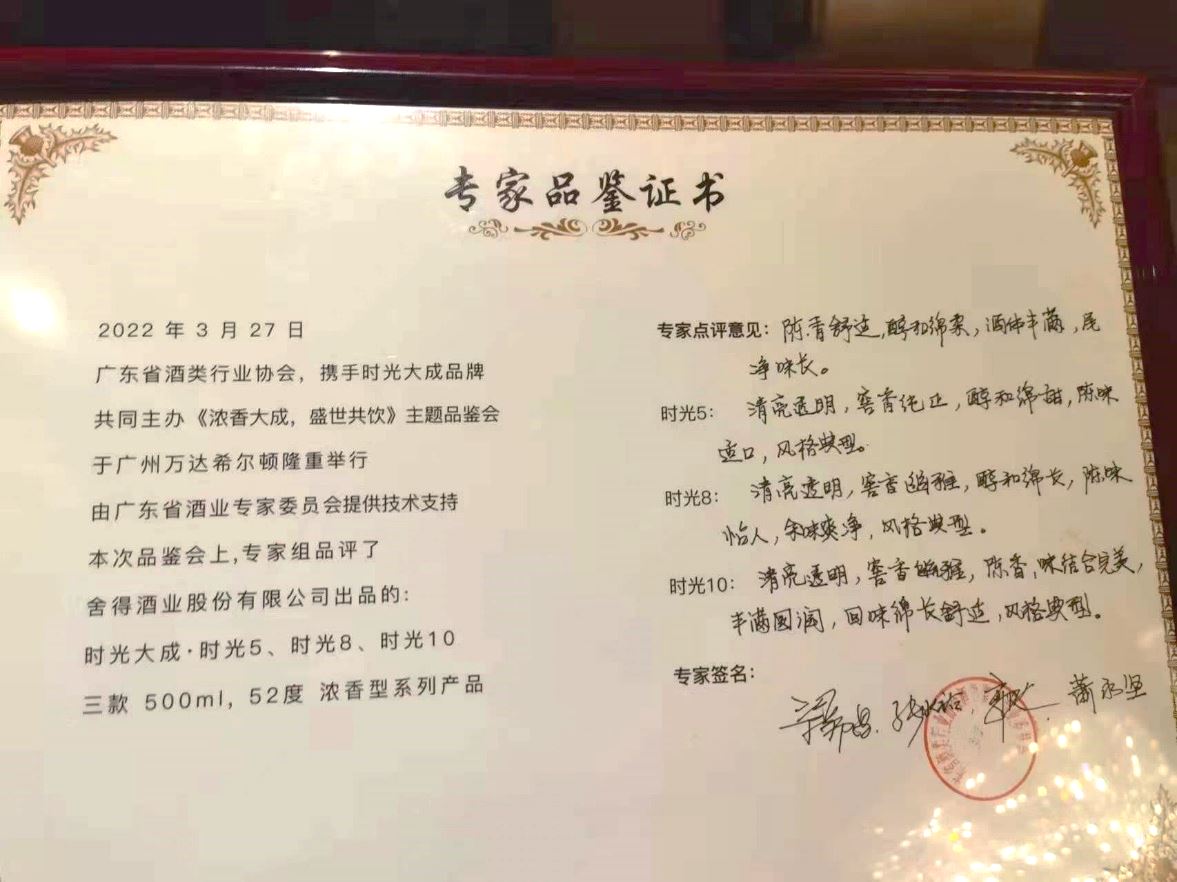 专家品鉴证书
2022 年 3 月 27 日
广东省酒类行业协会，携手时光大成品牌
共同主办《浓香大成，盛世共饮》主题品鉴会
于广州万达希尔顿隆重举行
由广东省酒业专家委员会提供技术支持
本次品鉴会上,专家组品评了
舍得酒业股份有限公司出品的:
时光大成·时光5、时光8、时光10
三款 500ml, 52度 浓香型系列产品
专家点评意见: 陈香舒适,醇和绵柔,酒体丰满,尾
净味长。
时光5: 清亮透明，窖香纯正，醇和绵甜，陈味
适口，风格典型。
时光8: 清亮透明，窖香幽雅，醇和绵长，陈味
怡人，余味爽净，风格典型。
时光10: 清亮透明，窖香幽雅，陈香,味结合完美,
丰满圆润，回味绵长舒适，风格典型。
专家签名: